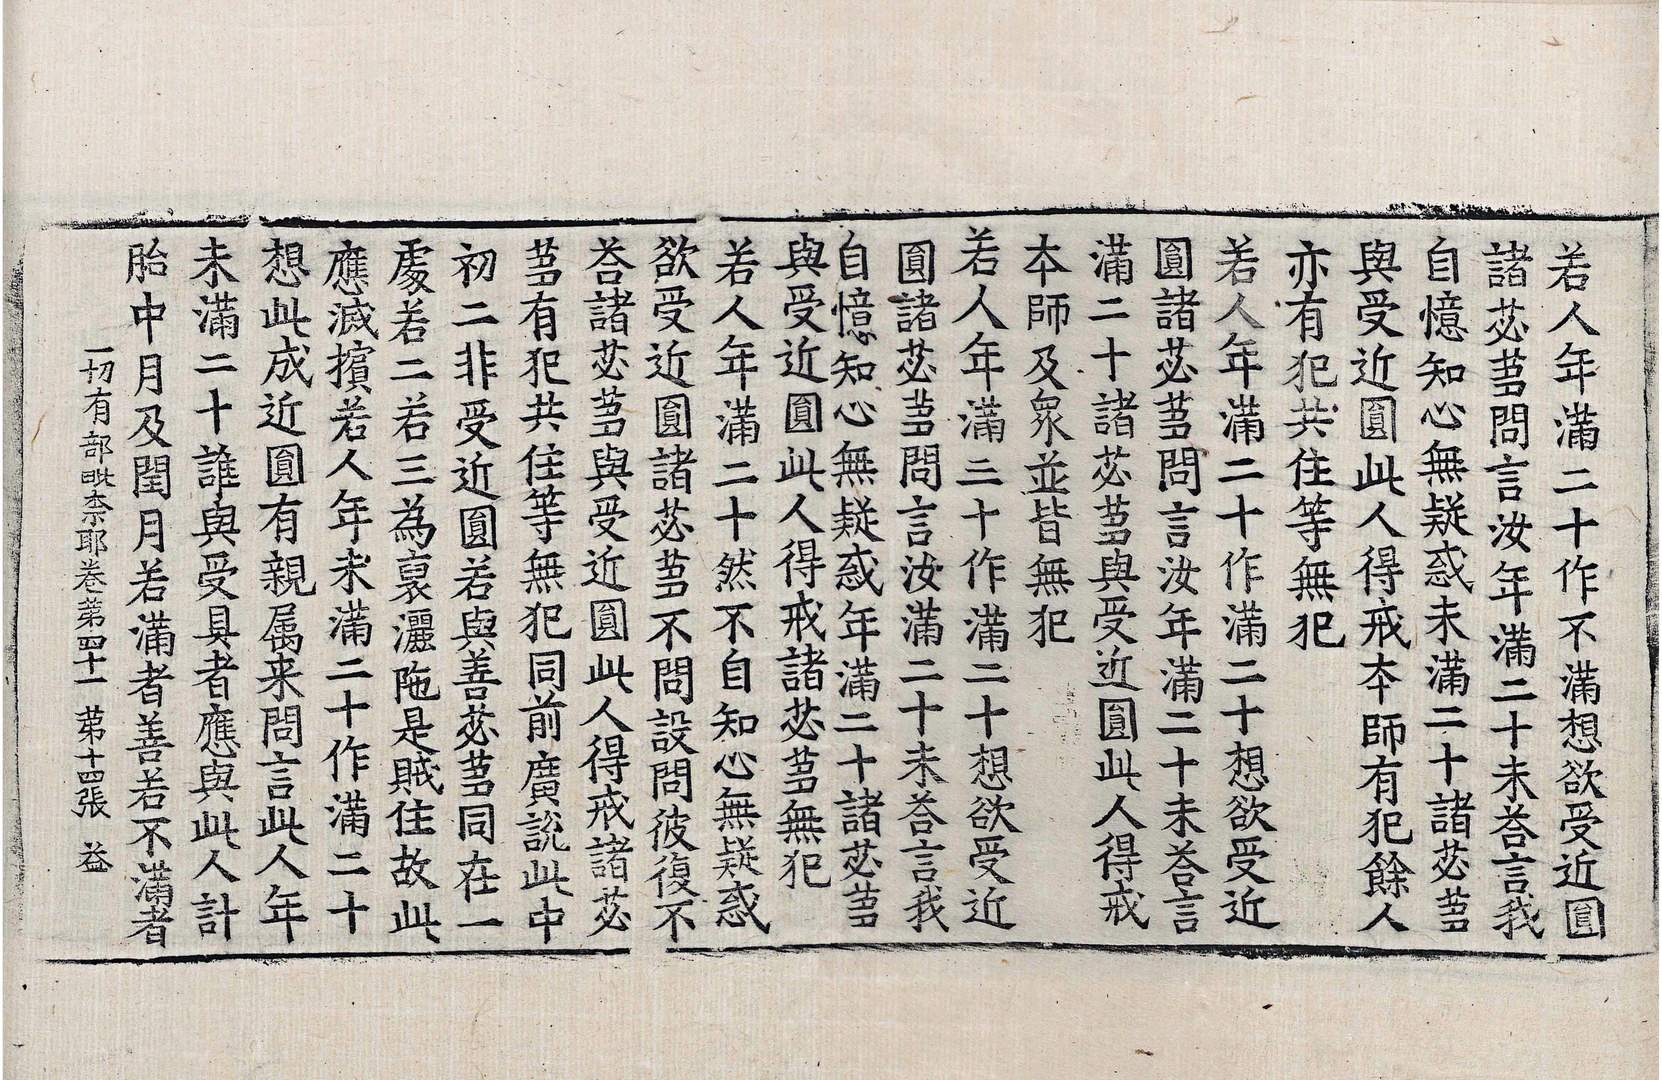 若人年滿二十作不滿想欲受近圓
諸苾芻問言汝年滿二十未荅言我
自憶知心無疑惑未滿二十諸苾芻
與受近圓此人得戒本師有犯餘人
亦有犯共住等無犯
若人年滿二十作滿二十想欲受近
圓諸苾芻問言汝年滿二十未荅言
滿二十諸苾芻與受近圓此人得戒
本師及衆並皆無犯
若人年滿三十作滿二十想欲受近
圓諸苾芻問言汝滿二十未荅言我
自憶知心無疑惑年滿二十諸苾芻
與受近圓此人得戒諸苾芻無犯
若人年滿二十然不自知心無疑惑
欲受近圓諸苾芻不問設問彼復不
荅諸苾芻與受近圓此人得戒諸苾
芻有犯共住等無犯同前廣說此中
初二非受近圓若與善苾芻同在一
處若二若三為裒灑陁是賊住故此
應滅擯若人年未滿二十作滿二十
想此成近圓有親属来問言此人年
未滿二十誰與受具者應與此人計
胎中月及閏月若滿者善若不滿者
一切有部毗柰耶卷第四十一 第十四張 益